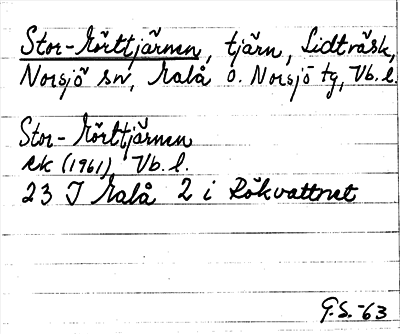 Stor-Mörttjärnen, tjärn, Lidträsk,
Norsjö sn, Malå o. Norsjö tg, Vb. l.
Stor-Mörttjärnen
ek (1961) Vb. l.
23 J Malå 2 i Rökvattnet
G.S.-63